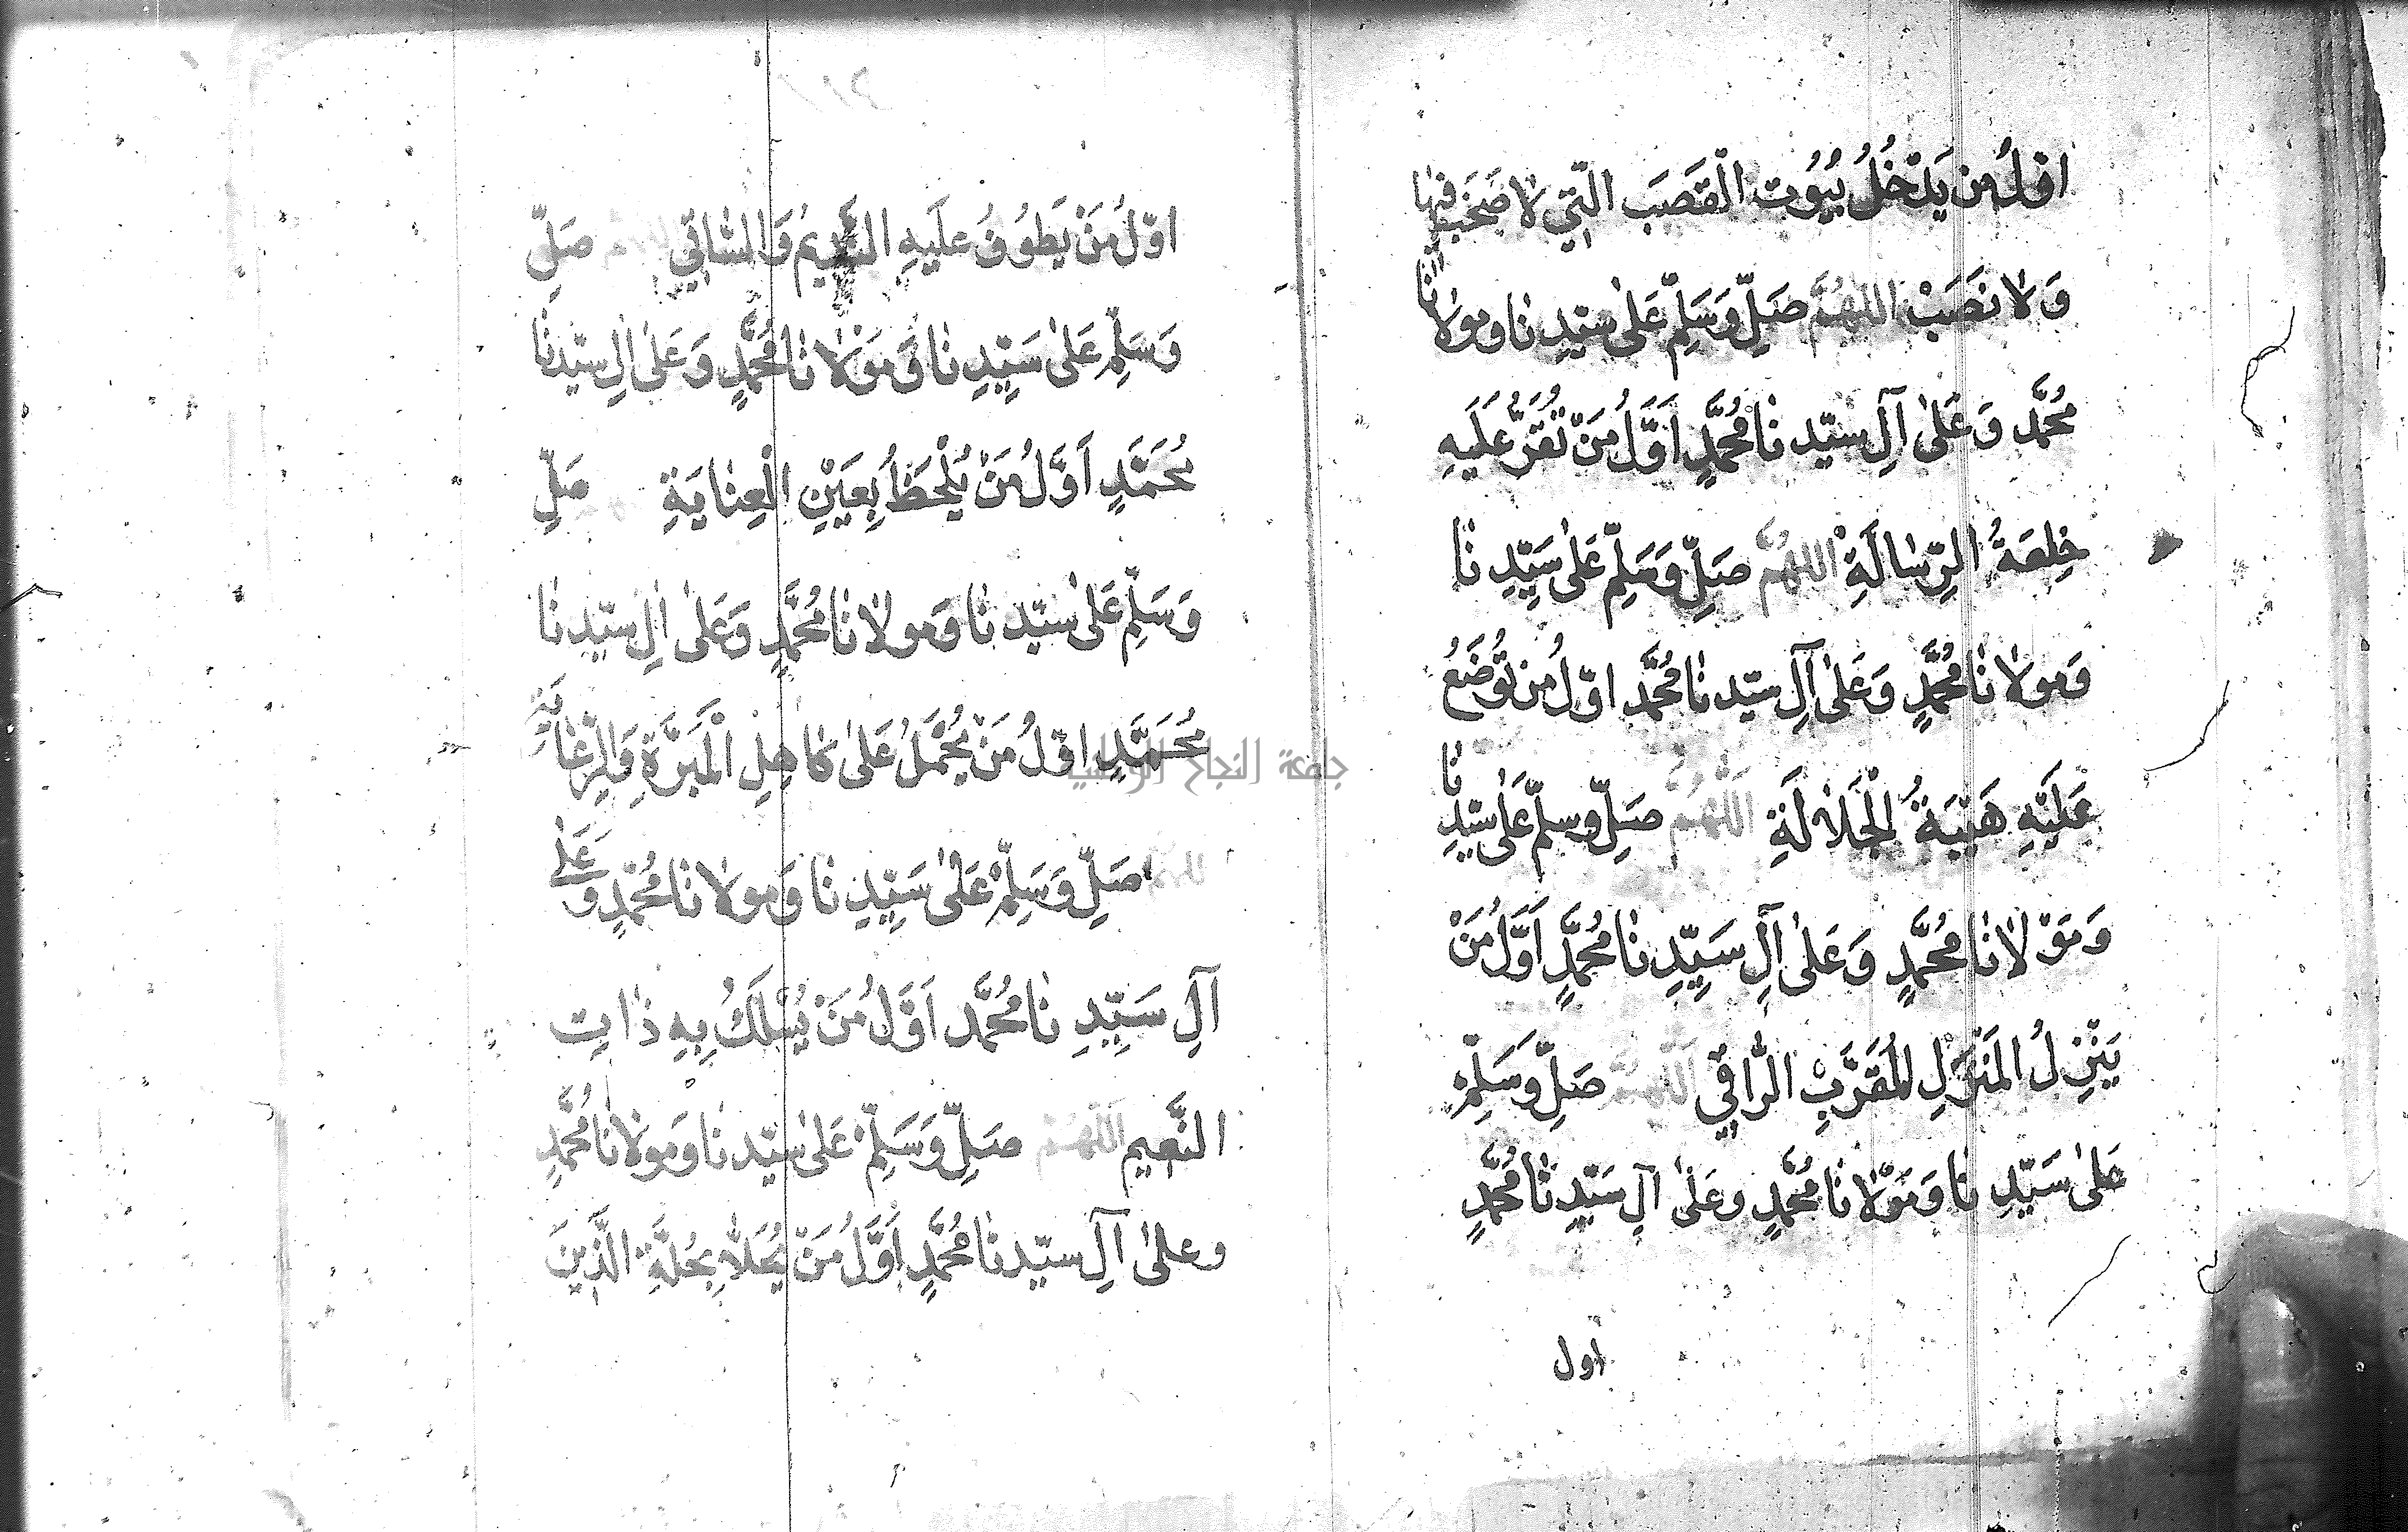 اوّلُ من يَدْخُلُ بُيُوُت الْقَصَبَ الَّتِي لا صَخَبَ فيها
وَلا نَصَبْ اللهُمَّ صَلِّ وَسَلِّمْ عَلىٰ سيّدِنا ومولانَا
مُحمَّد وَعَلىٰ آلِ سيّدنا مُحمَّدٍ اَوَّلُ مَنْ تُقَرُّ عَلَيهِ
خِلعَةُ الرِّسالَةِ اللهُمَّ صَلِّ وَسَلِّمْ عَلىٰ سَيّدِنا
وَمولانا مُحمَّدٍ وَعَلىٰ آلِ سيّدنا مُحمَّد اوّلُ من تُوضَعُ
عَلَيْهِ هَيْبَةُ الْجَلالَةِ اَللّهُمَّ صَلِّ وسلّمْ عَلىٰ سيّدِنا
وَمَوْلانا مُحمَّدٍ وَعَلىٰ آلِ سَيّدِنا مُحمَّدٍ اَوَّلُ مَنْ
يَنْزِلُ المَنْزِلِ الْمُقَرَّبِ الرَّاقِي اَللّهُمَّ صَلِّ وَسَلِّمْ
عَلىٰ سَيّدِنا وَمَوْلانا مُحمَّدٍ وعَلىٰ آلِ سَيّدِنا مُحمَّدٍ
اول
اوّلُ مَنْ يَطوُفُ عَلَيهِ وَالسّاقي صَلِّ
وَسَلِّمْ عَلىٰ سَيِّدِنا وَمَوْلانا مُحمَّدٍ وَعَلىٰ الِ سيّدنا
مُحَمَّدٍ اَوَّلُ مَنْ يُلْحَظُ بِعَيْنِ الْعِنايَةِ صَلِّ
وَسَلِّمْ عَلىٰ سيّدنا وَمولانا مُحمَّدٍ وَعَلىٰ الِ سيّدِنا
مُحَمَّدٍ اوّلُ مَنْ يُحْمَلُ عَلىٰ كاهِلِ الْمَبَرَّةِ وَالرِّعَايَةِ
صَلِّ وَسَلِّمْ عَلىٰ سَيِّدِنا وَمولانا مُحمَّدٍ وَعَلىٰ
آلِ سَيِّدِنا مُحمَّد اَوَّلُ مَنْ يُسْلَكُ بِهِ ذاتِ
النَّعِيمِ اَللّهُمَّ صَلِّ وَسَلِّمْ عَلىٰ سيّدنا وَمولانا مُحمَّدٍ
وعلىٰ آلِ سيّدنا مُحمَّدٍ اَوَّلُ مَنْ يُحَلاَّ بِحُلَّةِ الَّذِينَ
جامعة النجاح الوطنية